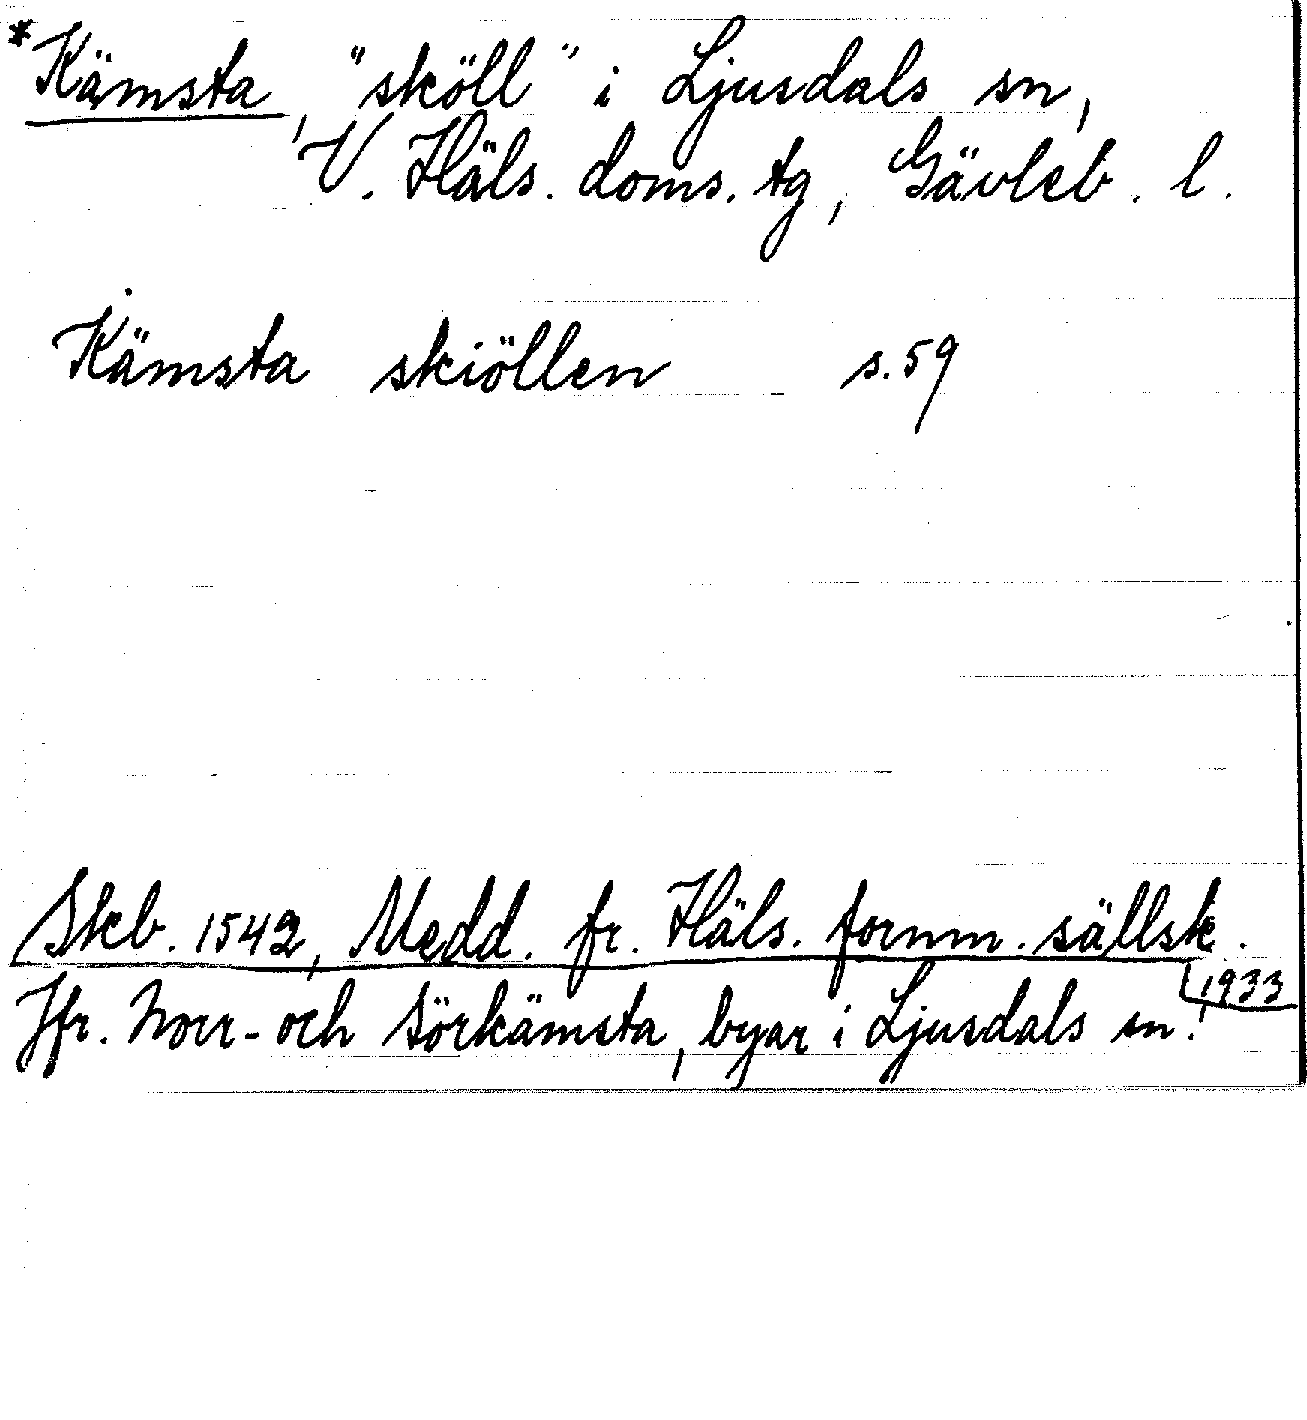 *Kämsta, "sköll" i Ljusdals sn,
V. Häls. doms. tg, Gävleb. l.
Kämsta skiöllen s. 59
Skb. 1542, Medd. fr. Häls. fornm. sällsk.
1933
Jfr. Norr- och Sörkämsta, byar i Ljusdals sn!